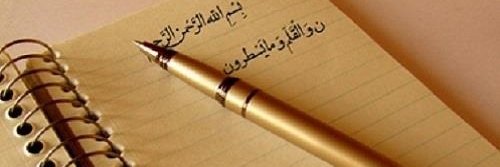 بِسْمِ اللهِ الرَّحْمٰنِ الرَّحِيمِ
ن وَالْقَلَمِ وَمَا يَسْطُرُونَ